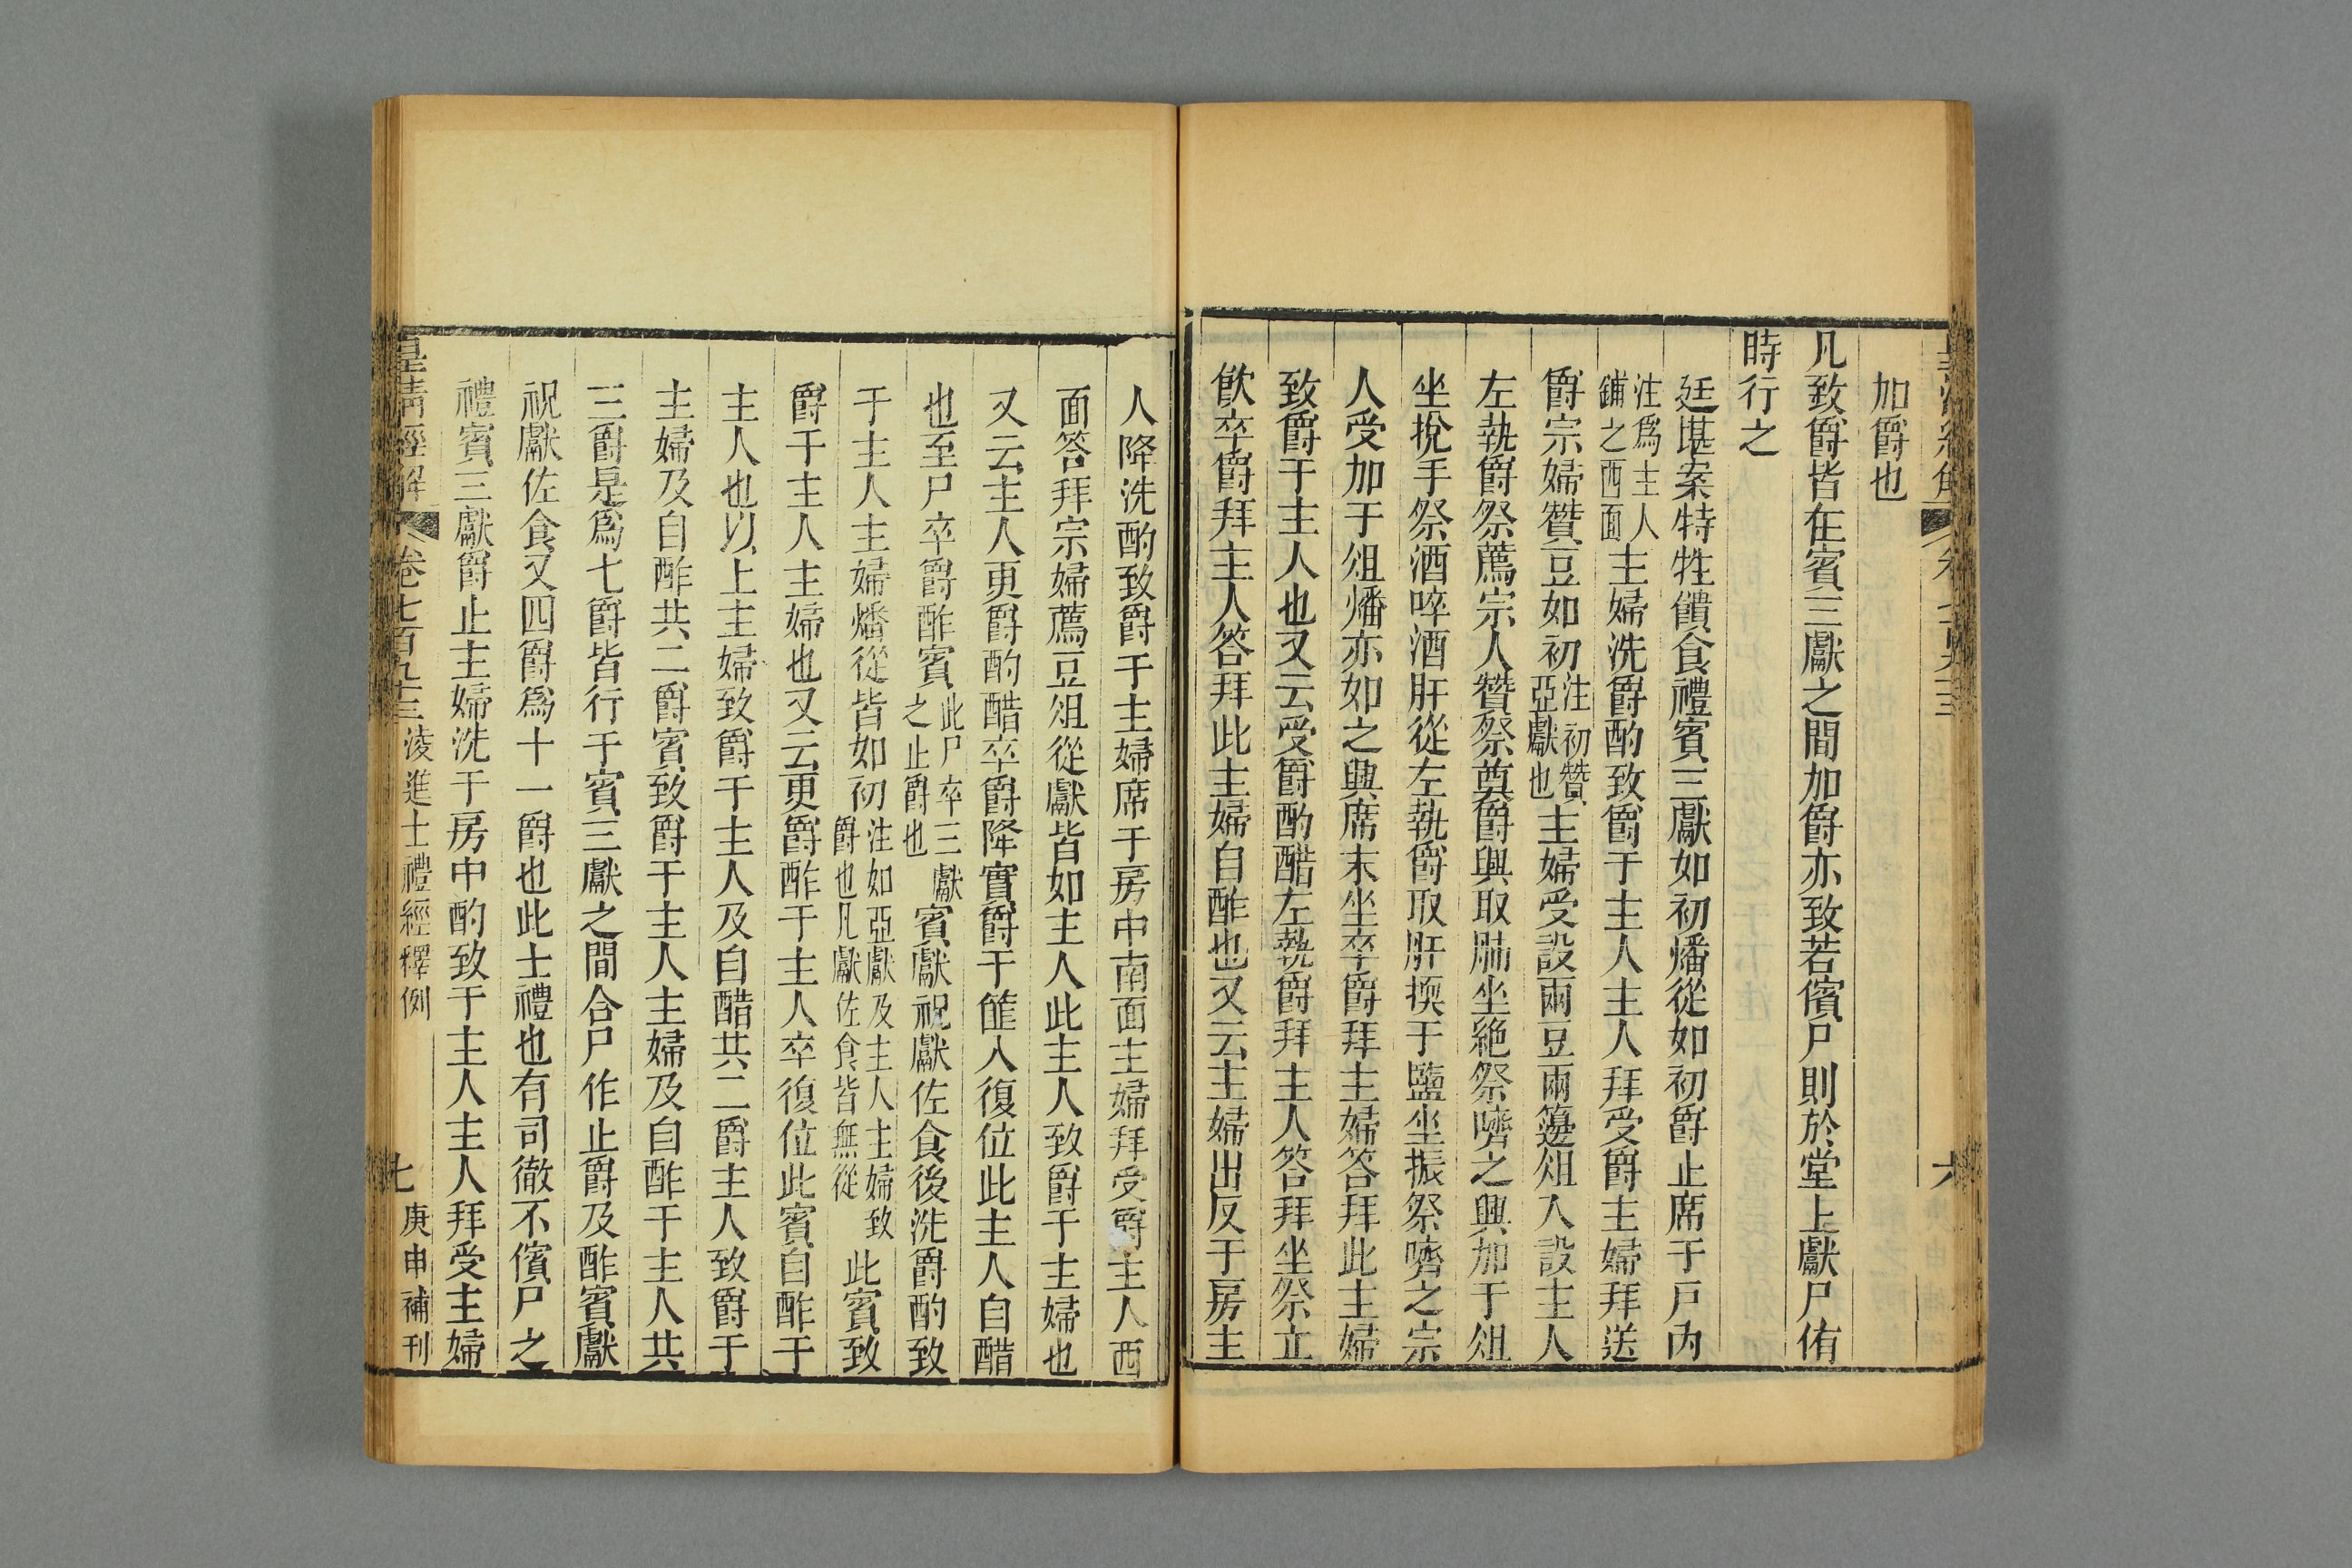 加爵也
凡致爵皆在賓三獻之間加爵亦致若儐尸則於堂上獻尸侑
時行之
廷堪案特牲饋食禮賓三獻如初燔從如初爵止席于戸內
注爲主人鋪之西面主婦洗爵酌致爵于主人主人拜受爵主婦拜送
爵宗婦贊豆如初注初贊亞獻也主婦受設兩豆兩籩俎入設主人
左執爵祭薦宗人贊祭奠爵興取肺坐絶祭嚌之興加于俎
坐挩手祭酒啐酒肝從左執爵取肝擩于鹽坐振祭嚌之宗
人受加于俎燔亦如之興席末坐卒爵拜主婦答拜此主婦
致爵于主人也又云受爵酌醋左執爵拜主人答拜坐祭立
飮卒爵拜主人答拜此主婦自酢也又云主婦出反于房主
人降洗酌致爵于主婦席于房中南面主婦拜受爵主人西
面答拜宗婦薦豆俎從獻皆如主人此主人致爵于主婦也
又云主人更爵酌醋卒爵降實爵于篚入復位此主人自醋
也至尸卒爵酢賓此尸卒三獻之止爵也賓獻祝獻佐食後洗爵酌致
于主人主婦燔從皆如初注如亞獻及主人主婦致爵也凡獻佐食皆無從此賓致
爵于主人主婦也又云更爵酢于主人卒復位此賓自酢于
主人也以上主婦致爵于主人及自醋共二爵主人致爵于
主婦及自酢共二爵賓致爵于主人主婦及自酢于主人共
三爵是爲七爵皆行于賓三獻之間合尸作止爵及酢賓獻
祝獻佐食又四爵爲十一爵也此士禮也有司徹不儐尸之
禮賓三獻爵止主婦洗于房中酌致于主人主人拜受主婦
皇清經解 卷七百九十三 淩進士禮經釋例 七 庚申補刊